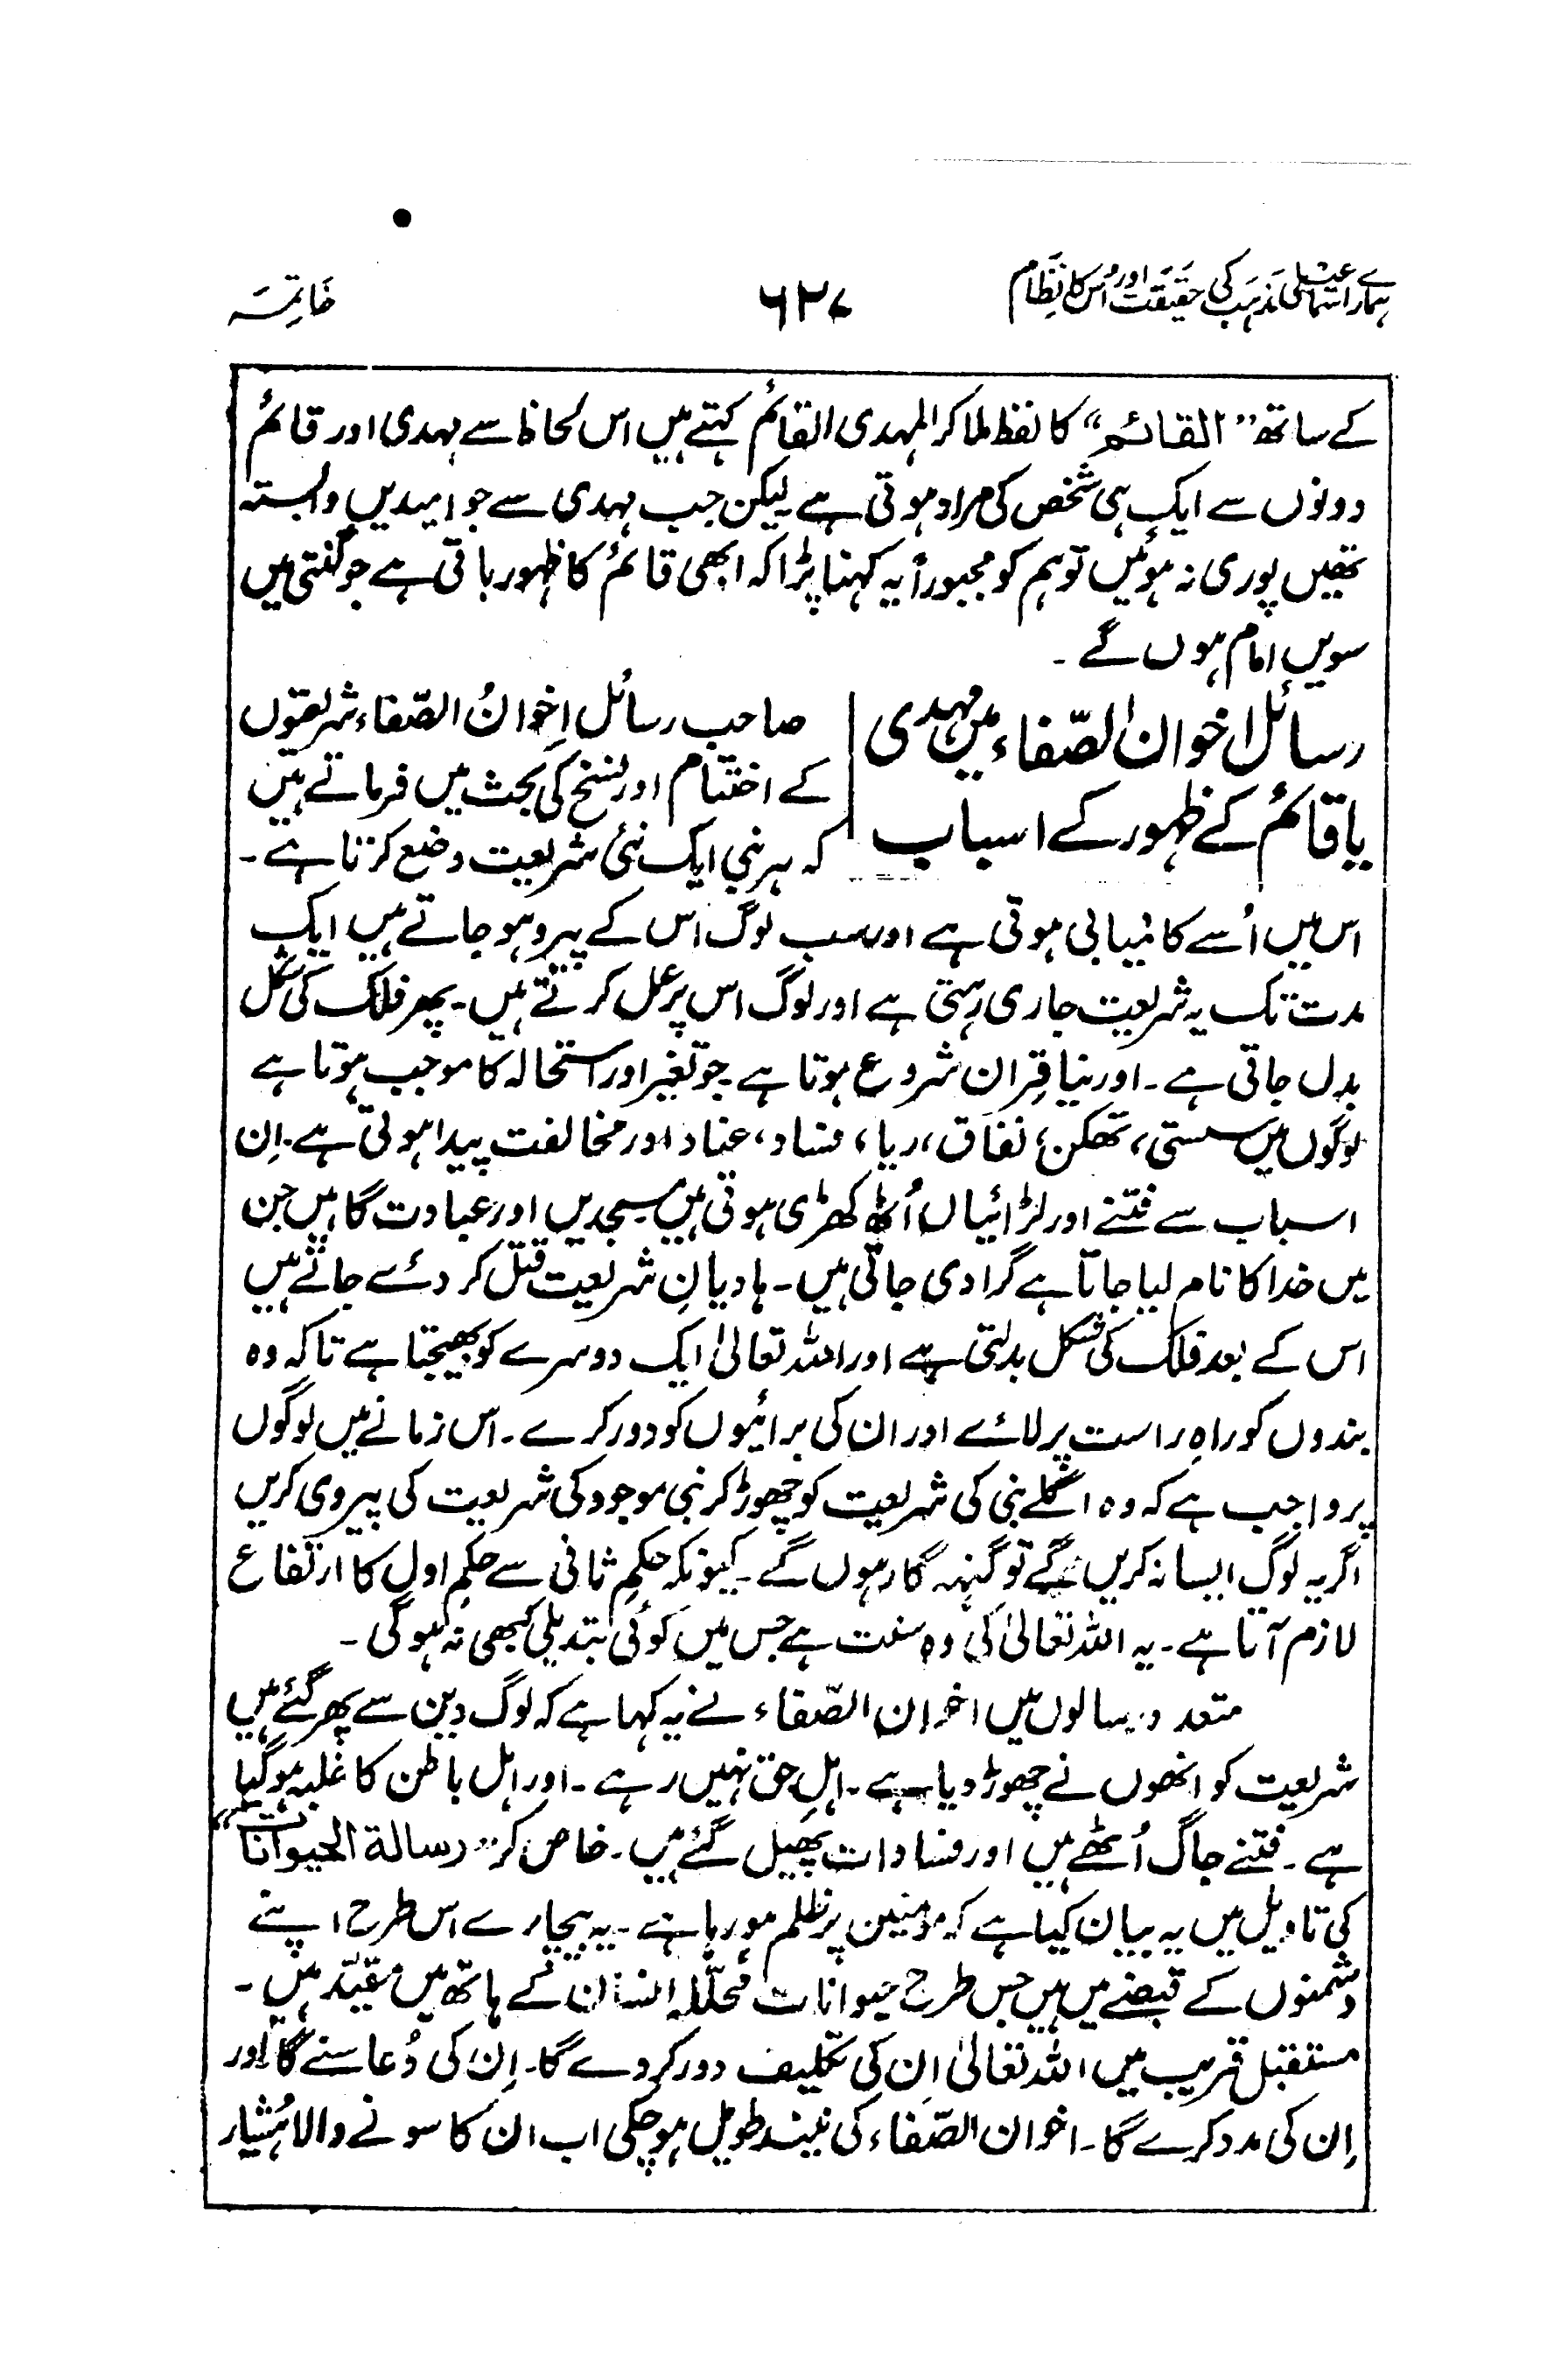 ہمارے اسماعیلی مذہب کی حقیقت اور اُس کا نظام
۶۲۷
خاتمہ
کے ساتھ ”القائم“ کا لفظ ملا کر المہدی القائم کہتے ہیں اس لحاظ سے مہدی اور قائم
دونوں سے ایک ہی شخص کی مراد ہوتی ہے لیکن جب مہدی سے جو امیدیں وابستہ
تھیں پوری نہ ہوئیں تو ہم کو مجبوراً یہ کہنا پڑا کہ ابھی قائم کا ظہور باقی ہے جو گنتی میں
سویں امام ہوں گے ۔
رسائل اخوان الصّفاء میں مہدی
یا قائم کے ظہور کے اسباب
صاحب رسائل اِخوانُ الصّفاء شریعتوں
کے اختتام اور نسخ کی بحث میں فرماتے ہیں
کہ ہر نبی ایک نئی شریعت وضع کرتا ہے ۔
اس میں اُسے کامیابی ہوتی ہے اور سب لوگ اس کے پیرو ہو جاتے ہیں ایک
مدت تک یہ شریعت جاری رہتی ہے اور لوگ اس پر عمل کرتے ہیں ۔ پھر فلک کی شکل
بدل جاتی ہے ۔ اور نیا قِران شروع ہوتا ہے ۔ جو تغیر اور استحالہ کا موجب ہوتا ہے
لوگوں میں سستی، تھکن، نفاق، ریا، فساد، عناد اور مخالفت پیدا ہوتی ہے ۔ اِن
اسباب سے فتنے اور لڑائیاں اُٹھ کھڑی ہوتی ہیں مسجدیں اور عبادت گاہیں جن
میں خدا کا نام لیا جاتا ہے گرا دی جاتی ہیں ۔ ہادیانِ شریعت قتل کر دئے جاتے ہیں
اس کے بعد فلک کی شکل بدلتی ہے اور اللہ تعالیٰ ایک دوسرے کو بھیجتا ہے تاکہ وہ
بندوں کو راہِ راست پر لائے اور ان کی برائیوں کو دور کرے ۔ اس زمانے میں لوگوں
پر واجب ہے کہ وہ اگلے نبی کی شریعت کو چھوڑ کر نبی موجود کی شریعت کی پیروی کریں
اگر یہ لوگ ایسا نہ کریں گے تو گنہہ گار ہوں گے ۔ کیونکہ حکمِ ثانی سے حکمِ اول کا ارتفاع
لازم آتا ہے ۔ یہ اللہ تعالیٰ کی وہ سنت ہے جس میں کوئی تبدیلی کبھی نہ ہو گی ۔
متعدد رسالوں میں اخوان الصّفاء نے یہ کہا ہے کہ لوگ دین سے پھر گئے ہیں
شریعت کو انھوں نے چھوڑ دیا ہے ۔ اہلِ حق نہیں رہے ۔ اور اہل باطن کا غلبہ ہو گیا
ہے ۔ فتنے جاگ اُٹھے ہیں اور فسادات پھیل گئے ہیں ۔ خاص کر ”رسالة الحیوانات“
کی تاویل میں یہ بیان کیا ہے کہ مومنین پر ظلم ہو رہا ہے ۔ یہ بیچارے اس طرح اپنے
دشمنوں کے قبضے میں ہیں جس طرح حیوانات مُحلّلہ انسان کے ہاتھ میں مقیّد ہیں ۔
مستقبل قریب میں اللہ تعالیٰ اِن کی تکلیف دور کر دے گا ۔ اِن کی دُعا سنے گا اور
اِن کی مدد کرے گا ۔ اخوان الصّفاء کی نیند طویل ہو چکی اب ان کا سونے والا ہُشیار